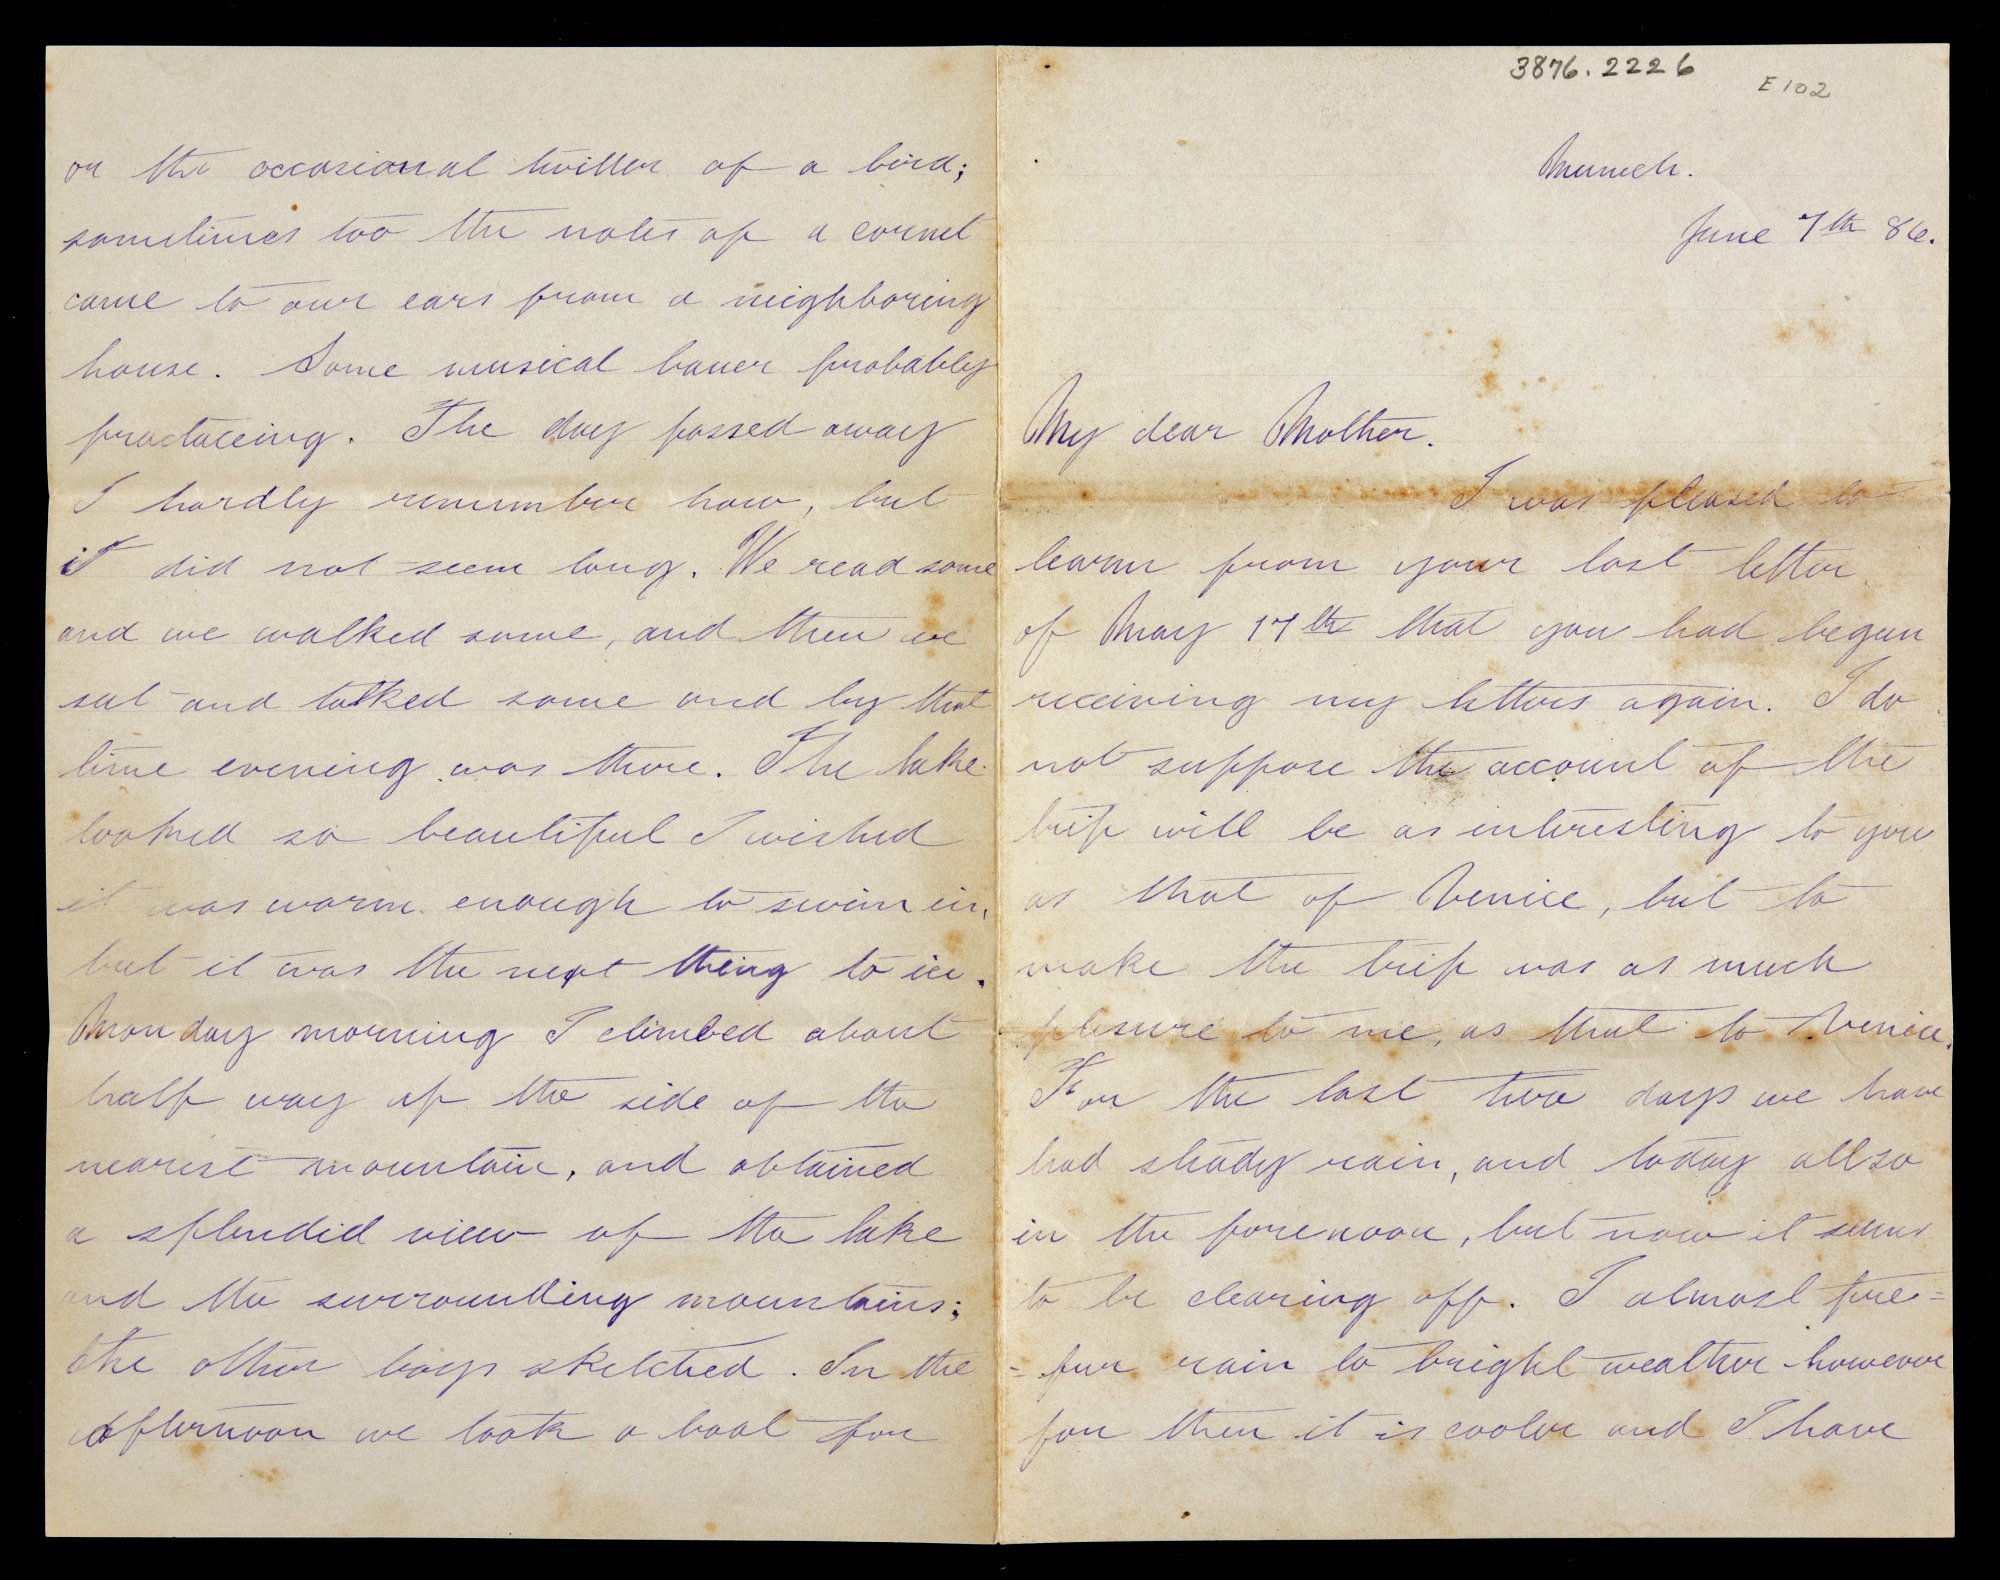 3876.2226
E 102
Munich.
June 7th 86.
My dear Mother.
I was pleased to
learn from your last letter
of May 17th that you had begun
receiving my letters again. I do
not suppose the account of the
trip will be as interesting to you
as that of Venice, but to
make the trip was as much
plesure to me, as that to Venice.
For the last two days we have
had steady rain, and today allso
in the forenoon, but now it seems
to be clearing off. I almost pre=
=fur rain to bright weather however
for then it is cooler and I have
or the occasional twitter of a bird;
sometimes too the notes of a cornet
came to our ears from a neighboring
house. Some musical bauer probably
practaceing. The day passed away
I hardly remember how, but
it did not seem long. We read some
and we walked some, and then we
sat and talked some and by that
time evening was there. The lake
looked so beautiful I wished
it was warm enough to swim in,
but it was the next thing to ice.
Monday morning I climbed about
half way up the side of the
nearest mountain, and obtained
a splendid view of the lake
and the surrounding mountains;
the other boys sketched. In the
afternoon we took a boat for